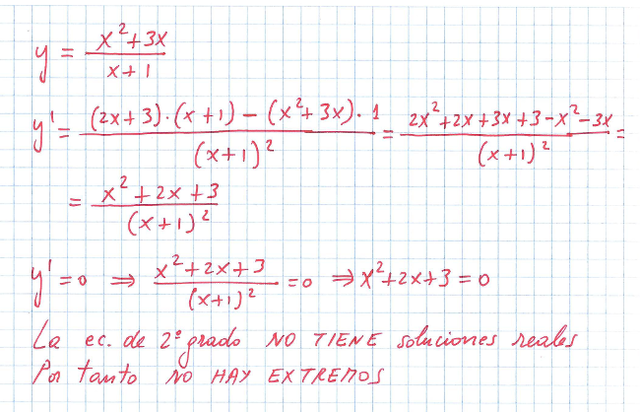 y = (x²+3x)/(x+1)
y' = ((2x+3)·(x+1) − (x²+3x)·1)/(x+1)² = (2x²+2x+3x+3−x²−3x)/(x+1)² =
= (x²+2x+3)/(x+1)²
y'=0 ⇒ (x²+2x+3)/(x+1)² =0 ⇒ x²+2x+3=0
La ec. de 2º grado NO TIENE soluciones reales
Por tanto NO HAY EXTREMOS